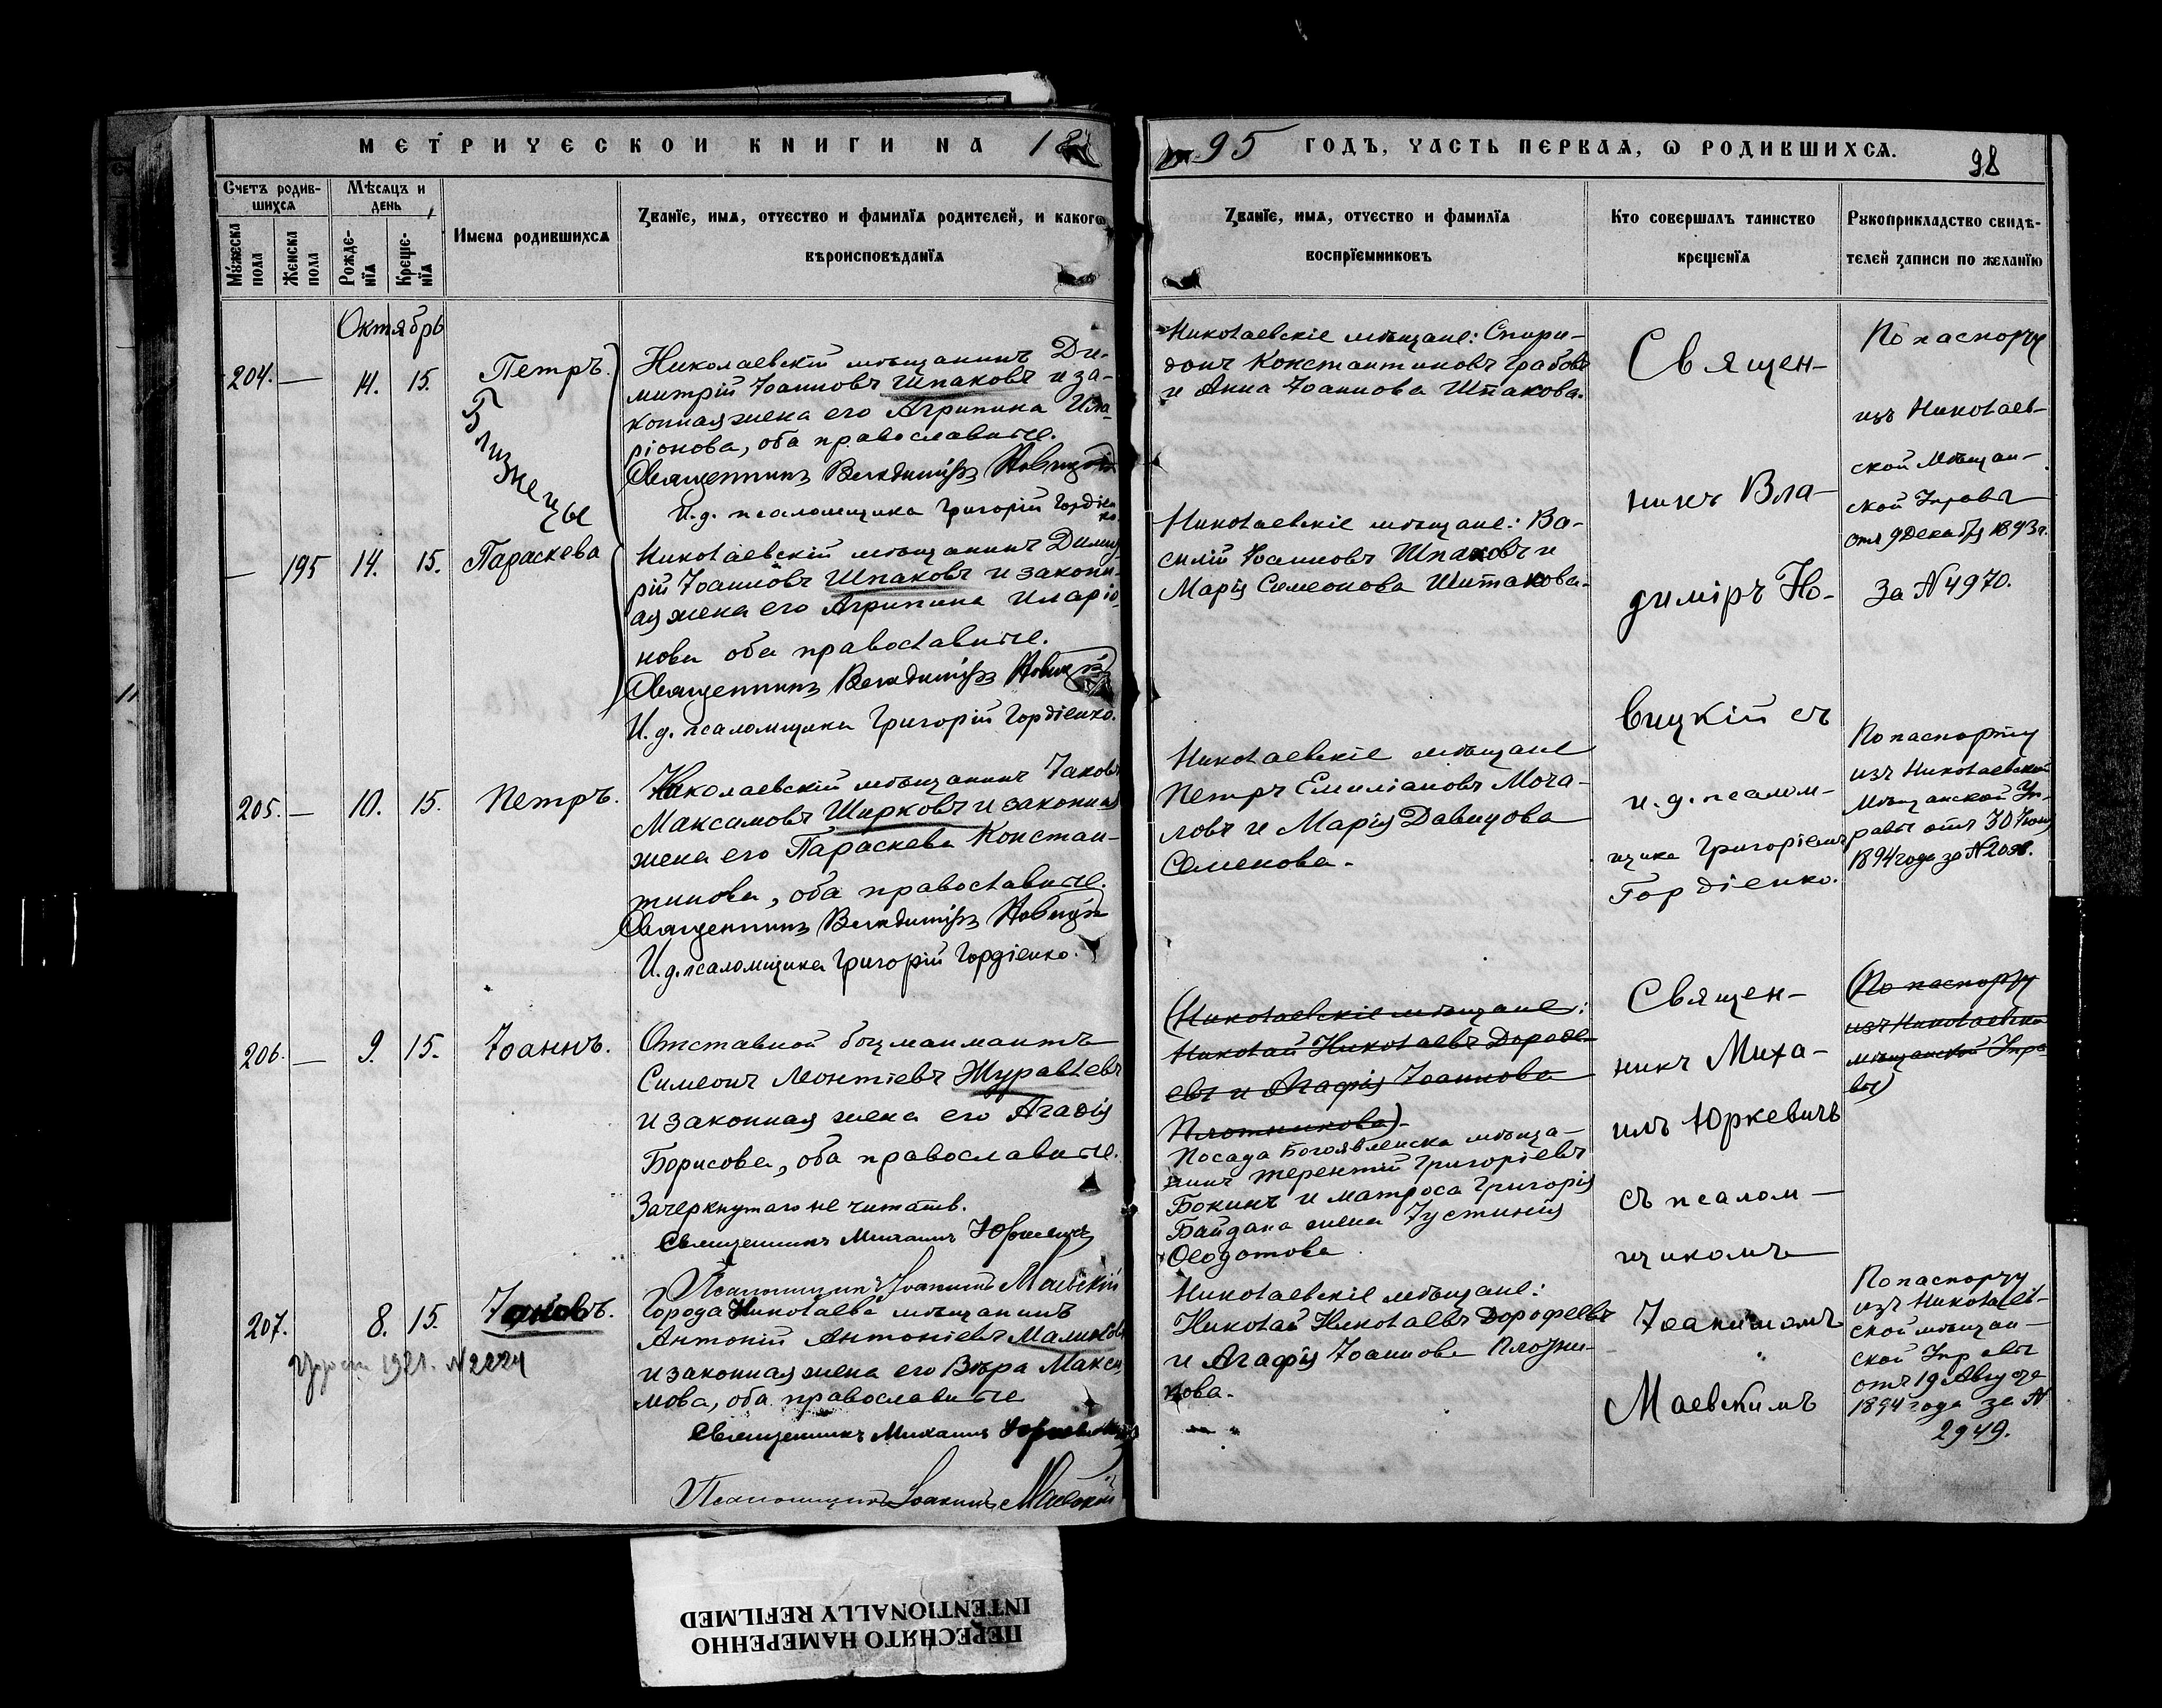 МЕТРИЧЕСКОЙ КНИГИ НА 18
95 ГОДЪ, ЧАСТЬ ПЕРВАЯ, Ѡ РОДИВШИХСЯ.
98
Счетъ родив-
шихся
Мѣсяцъ и
день
Мужеска
пола
Женска
пола
Рожде-
нїя
Креще-
нїя
Имена родившихся
Званїе, имя, отчество и фамилїя родителей, и какогѡ
вѣроисповѣданїя
Званїе, имя, отчество и фамилїя
воспрїемниковъ
Кто совершалъ таинство
крещенїя
Рукоприкладство свидѣ-
телей записи по желанїю
Октябрь
204. — 14. 15. Петръ.
Близнецы
Николаевскій мѣщанинъ Ди-
митрій Іоанновъ Шпаковъ и за-
конная жена его Агрипина Ила-
ріонова, оба православные.
Священникъ Владиміръ Новицкій
И. д. псаломщика Григорій Гордіен-
ко.
Николаевскіе мѣщане: Спири-
донъ Константиновъ Грабовъ
и Анна Іоаннова Шпакова.
— 195 14. 15. Параскева
Николаевскій мѣщанинъ Димит-
рій Іоанновъ Шпаковъ и законн-
ая жена его Агрипина Иларіо-
нова оба православные.
Священникъ Владиміръ Новицкій
И. д. псаломщика Григорій Гордіенко.
Николаевскіе мѣщане: Ва-
силій Іоанновъ Шпаковъ и
Марія Симеонова Шпакова.
205. — 10. 15. Петръ.
Николаевскій мѣщанинъ Іаковъ
Максимовъ Ширковъ и законная
жена его Параскева Констан-
тинова, оба православные.
Священникъ Владиміръ Новицкій
И. д. псаломщика Григорій Гордіенко.
Николаевскіе мѣщане
Петръ Емиліановъ Моча-
ловъ и Марія Давидова
Семенова.
Священ-
никъ Вла-
диміръ Но-
вицкій съ
и. д. псалом-
щика Григоріемъ
Гордіенко.
По паспорту
изъ Николаев-
ской Мѣщан-
ской Управы
отъ 9 Декабря 1893 г.
За N 4970.
По паспорту
изъ Николаевской
Мѣщанской Уп-
равы отъ 30 Іюня
1894 года за N
206. — 9. 15. Іоаннъ.
Отставной боцманматъ
Симеонъ Леонтіевъ Журавлевъ
и законная жена его Агафія
Борисова, оба православные.
Зачеркнутаго не читать.
Священникъ Михаилъ Юркевичъ
Псаломщикъ Іоакимъ Маевскій
(Николаевскіе мѣщане:
Николай Николаевъ Дорофе-
евъ и Агафія Іоаннова
Плотникова).
Посада Богоявленска мѣща-
нинъ Терентій Григоріевъ
Бокинъ и матроса Григорія
Байдака жена Іустинія
Ѳеодотова
(По паспорту
изъ Николаевской
мѣщанской Упра-
вы)
207. 8. 15. Іаковъ.
1921. N 2224
Города Николаева мѣщанинъ
Антоній Антоніевъ Малиновъ
и законная жена его Вѣра Макси-
мова, оба православные
Священникъ Михаилъ Юркевичъ
Псаломщикъ Іоакимъ Маевскій
Николаевскіе мѣщане:
Николай Николаевъ Дорофеевъ
и Агафія Іоаннова Плотни-
кова.
Священ-
никъ Миха-
илъ Юркевичъ
съ псалом-
щикомъ
Іоакимомъ
Маевскимъ
По паспорту
изъ Николаев-
ской мѣщан-
ской Управы
отъ 19 Августа
1894 года за N
2949.
ПЕРЕСНЯТО НАМЕРЕННО
INTENTIONALLY REFILMED